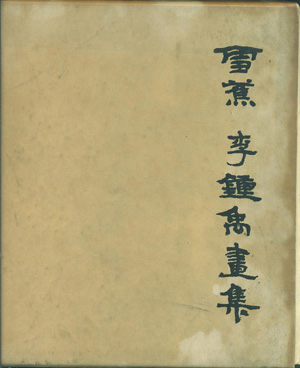 雪蕉 李鍾禹畫集